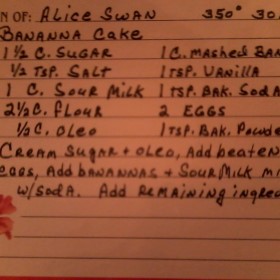 N OF: ALICE SWAN 350° 30
BANANNA CAKE
1 1/2 C. SUGAR 1 C. MASHED BAN
1/2 TSP. SALT 1 TSP. VANILLA
1 C SOUR MILK 1 TSP. BAK. SODA
2 1/2 C. FLOUR 2 EGGS
1/2 C. OLEO 1 TSP. BAK. POWDE
CREAM SUGAR + OLEO, ADD BEATEN
EGGS, ADD BANANNAS + SOUR MILK MI
W/SODA. ADD REMAINING INGRE